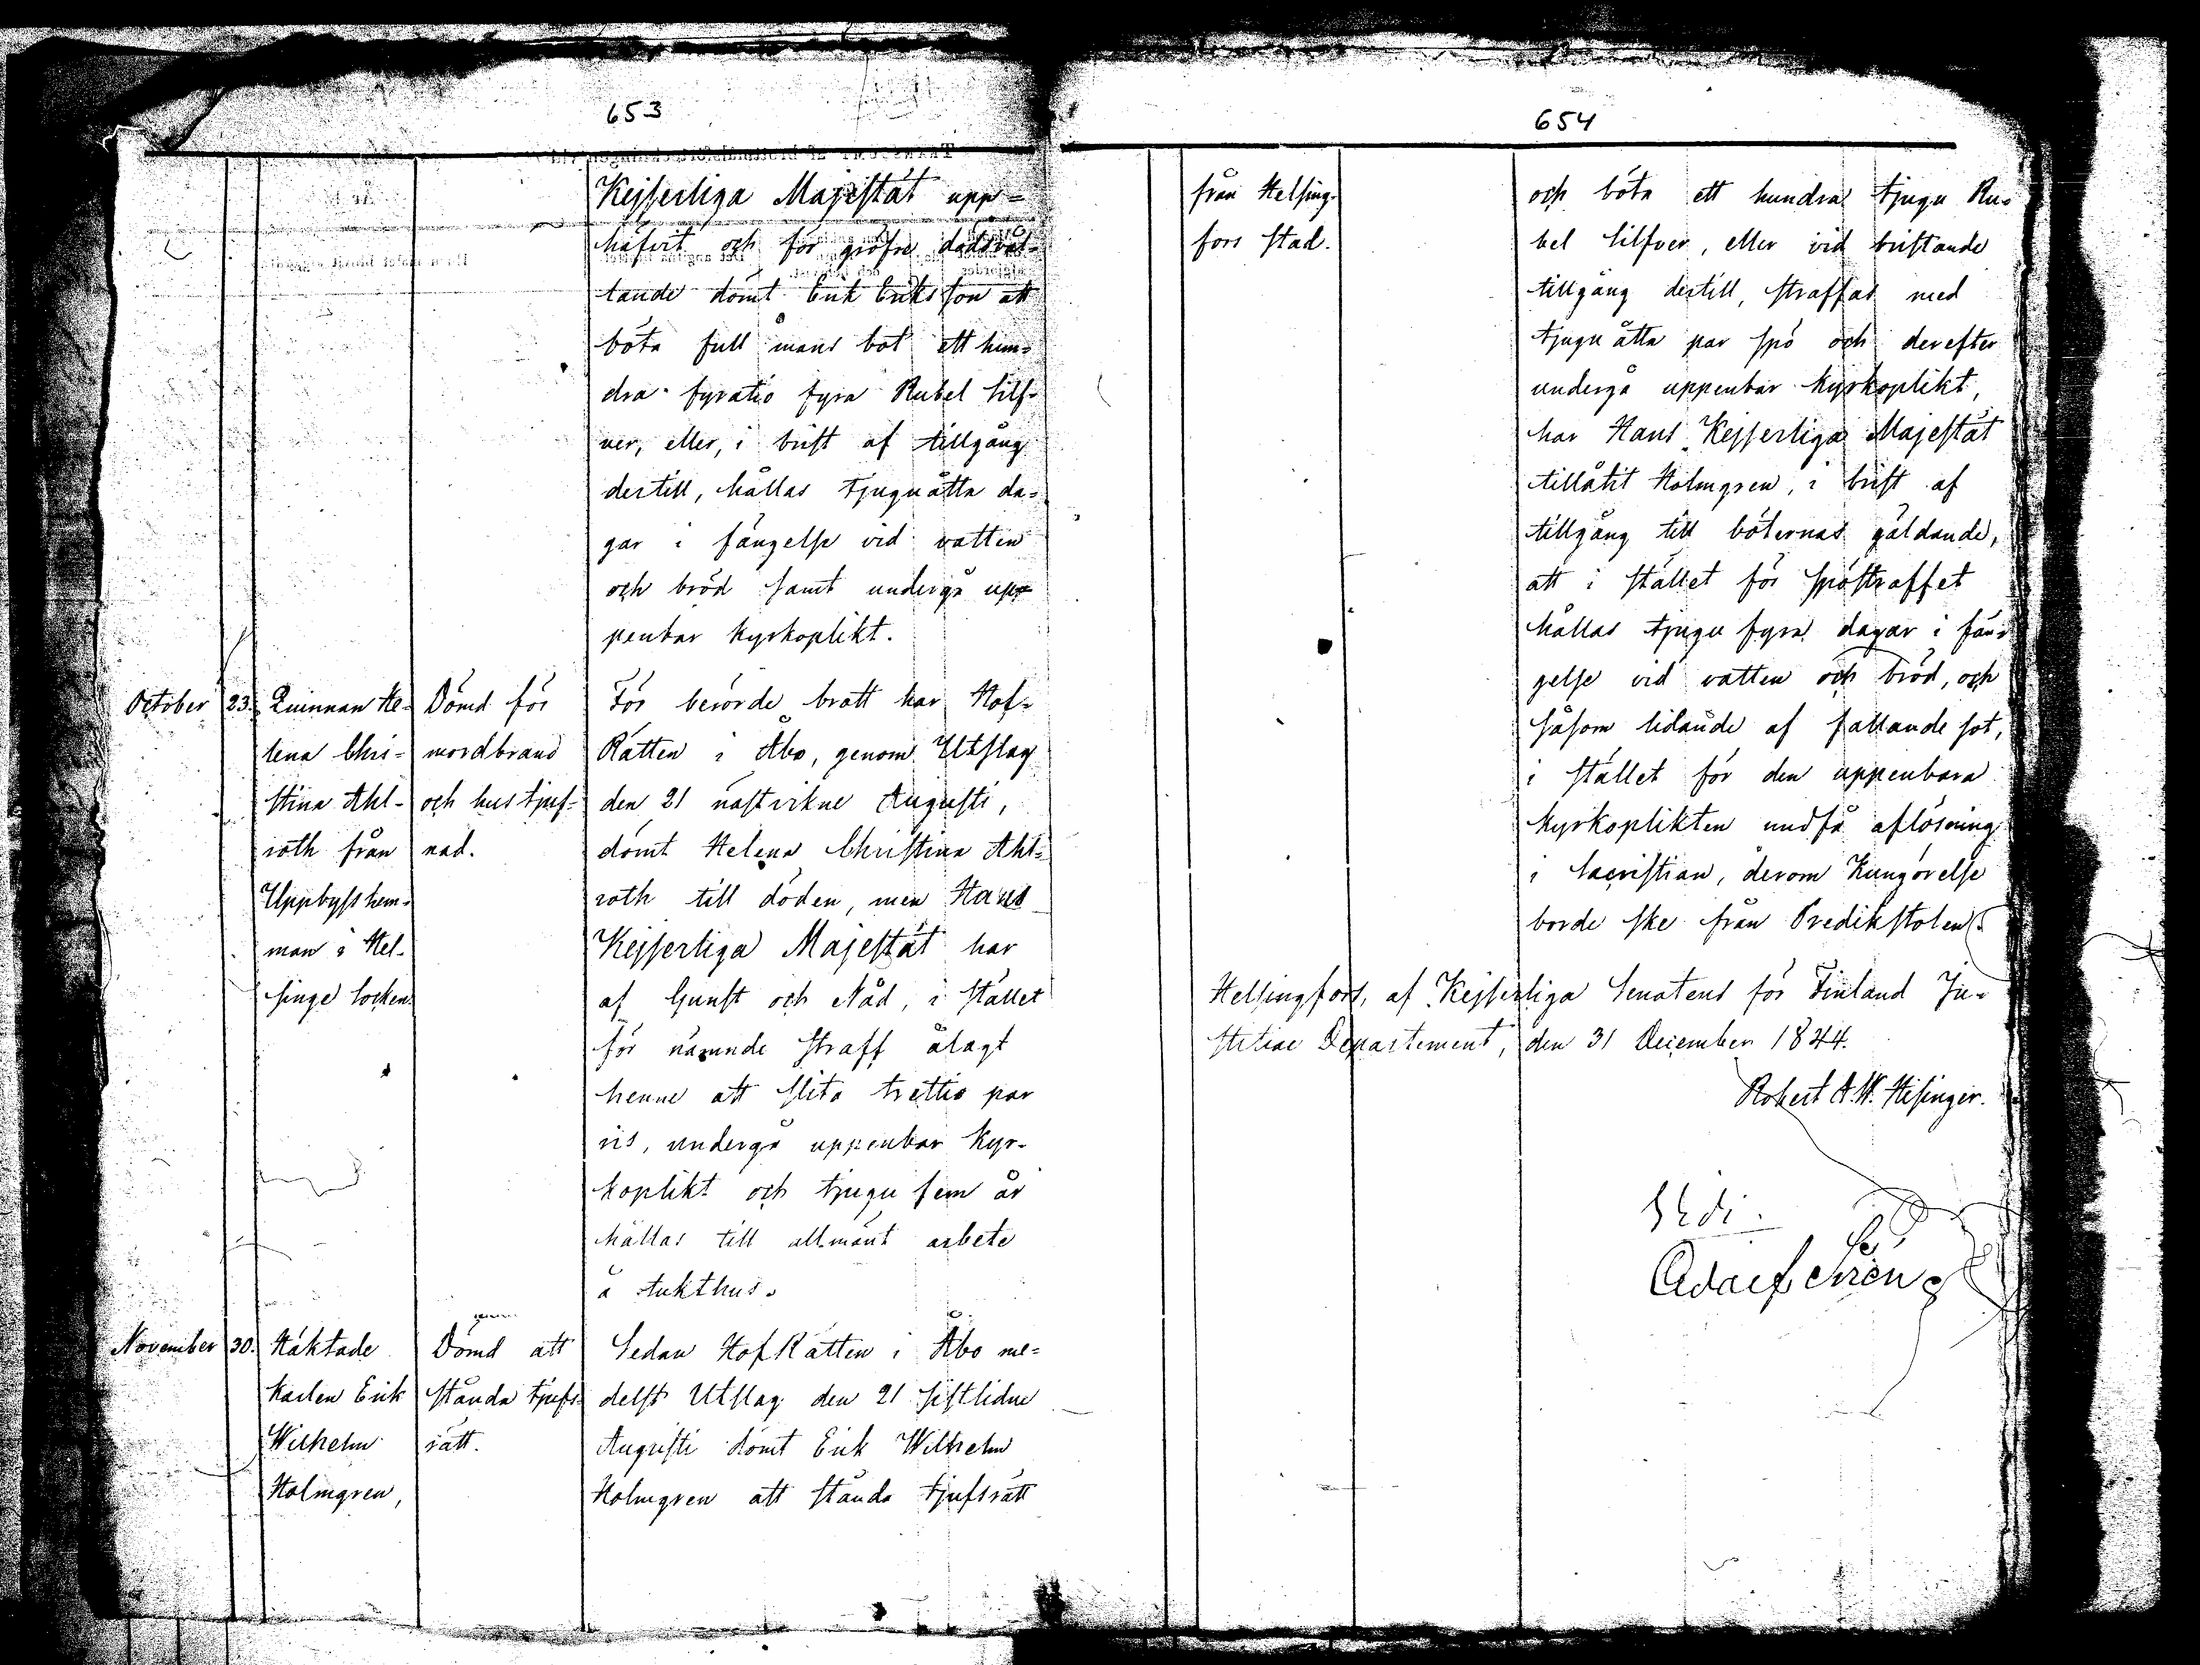 653
Kejserliga Majestät upp=
häfvit och för gröfre dådsvål-
lande dömt Erik Eriksson att
böta full mans bot ett hun-
dra fyratio fyra Rubel Silf-
ver, eller, i brist af tillgång
dertill, hållas tjuguåtta da-
gar i fängelse vid vatten
och bröd samt undergå up-
penbar kyrkoplikt.
October 23.
Quinnan He-
lena Chri-
stina Ahl-
roth från
Uppbyss hem-
man i Hel-
singe Socken.
Dömd för
mordbrand
och hus tjuf-
nad.
För berörde brott har Hof-
Rätten i Åbo, genom Utslag
den 21 nästvikne Augusti,
dömt Helena Christina Ahl-
roth till döden, men Hans
Kejserliga Majestät har
af Gunst och Nåd, i stället
för nämnde straff ålagt
henne att slita trettio par
ris, undergå uppenbar Kyr-
koplikt och tjugu fem år
hållas till allmänt arbete
å tukthus.
November 30.
Häktade
karlen Erik
Wilhelm
Holmgren,
Dömd att
stånda tjufs-
rätt.
Sedan HofRätten i Åbo me-
delst Utslag den 21 sistlidne
Augusti dömt Erik Wilhelm
Holmgren att stånda tjufsrätt
654
från Helsing-
fors stad.
och böta ett hundra tjugu Ru-
bel Silfver, eller vid bristande
tillgång dertill, straffas med
tjugu åtta par spö och derefter
undergå uppenbar kyrkoplikt,
har Hans Kejserliga Majestät
tillåtit Holmgren, i brist af
tillgång till böternas gäldande,
att i stället för spöstraffet
hållas tjugu fyra dagar i fän-
gelse vid vatten och bröd, och
såsom lidande af fallande sot,
i stället för den uppenbara
kyrkoplikten undfå aflösning
i Sacristian, derom Kungörelse
borde ske från Predikstolen.
Helsingfors, af Kejserliga Senatens för Finland Ju-
stitiae Departement, den 31 December 1844.
Robert A. W. Hisinger.